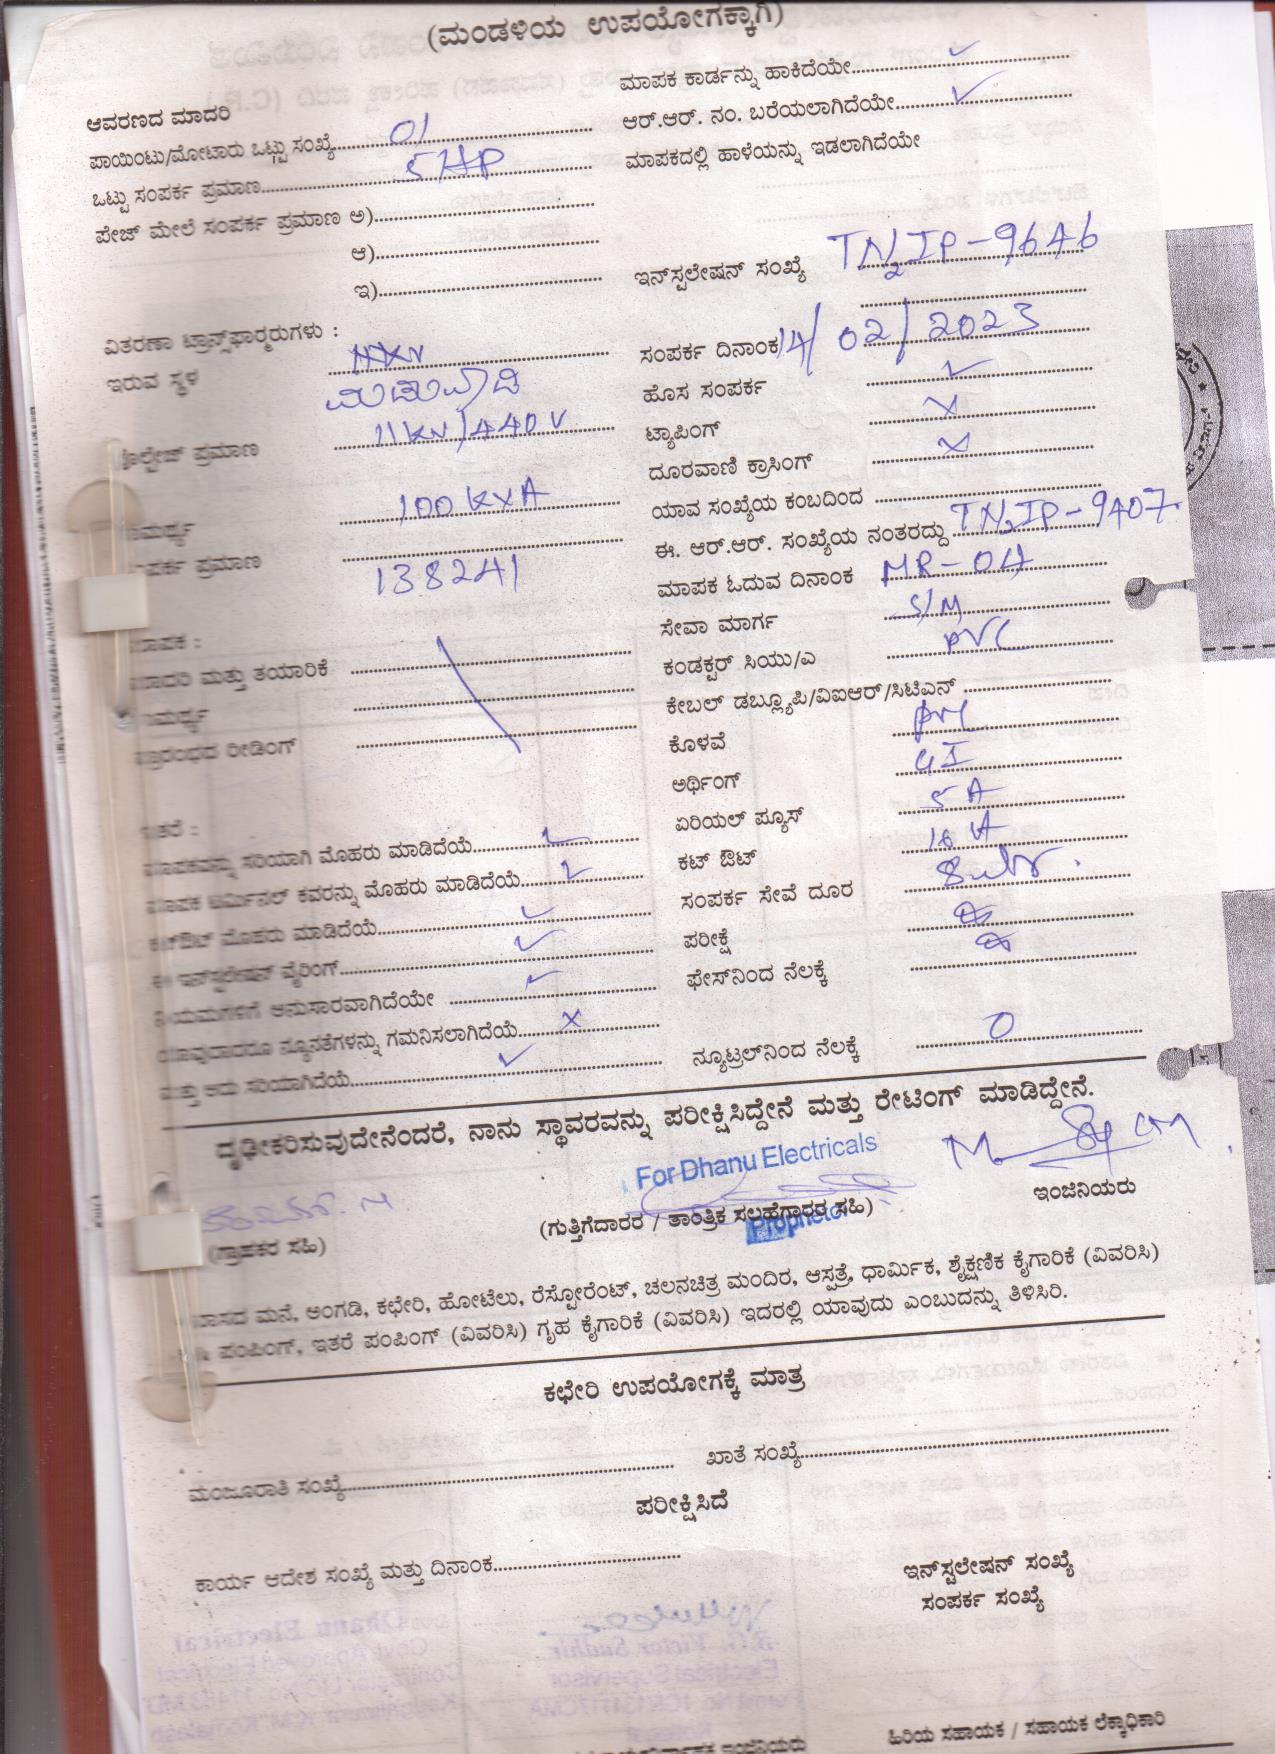 (ಮಂಡಳಿಯ ಉಪಯೋಗಕ್ಕಾಗಿ)
ಮಾಪಕ ಕಾರ್ಡನ್ನು ಹಾಕಿದೆಯೇ ✓
ಆವರಣದ ಮಾದರಿ
ಆರ್.ಆರ್. ನಂ. ಬರೆಯಲಾಗಿದೆಯೇ ✓
ಪಾಯಿಂಟು/ಮೋಟಾರು ಒಟ್ಟು ಸಂಖ್ಯೆ 01
ಮಾಪಕದಲ್ಲಿ ಹಾಳೆಯನ್ನು ಇಡಲಾಗಿದೆಯೇ
ಒಟ್ಟು ಸಂಪರ್ಕ ಪ್ರಮಾಣ 5 HP
ಪೇಜ್ ಮೇಲೆ ಸಂಪರ್ಕ ಪ್ರಮಾಣ ಅ)
ಆ)
ಇನ್‌ಸ್ಟಲೇಷನ್ ಸಂಖ್ಯೆ TN2IP-9646
ಇ)
ವಿತರಣಾ ಟ್ರಾನ್ಸ್‌ಫಾರ್ಮರುಗಳು :
ಸಂಪರ್ಕ ದಿನಾಂಕ 14/02/2023
ಇರುವ ಸ್ಥಳ
ಹೊಸ ಸಂಪರ್ಕ ✓
ವೋಲ್ಟೇಜ್ ಪ್ರಮಾಣ 11kv/440V
ಟ್ಯಾಪಿಂಗ್ ×
ದೂರವಾಣಿ ಕ್ರಾಸಿಂಗ್ ×
ಸಾಮರ್ಥ್ಯ 100 KVA
ಯಾವ ಸಂಖ್ಯೆಯ ಕಂಬದಿಂದ
ಸಂಪರ್ಕ ಪ್ರಮಾಣ 138241
ಈ. ಆರ್.ಆರ್. ಸಂಖ್ಯೆಯ ನಂತರದ್ದು TN2IP-9407
ಮಾಪಕ ಓದುವ ದಿನಾಂಕ MR-04
ಮಾಪಕ :
ಸೇವಾ ಮಾರ್ಗ S/M
ಮಾದರಿ ಮತ್ತು ತಯಾರಿಕೆ
ಕಂಡಕ್ಟರ್ ಸಿಯು/ಎ PVC
ಸಾಮರ್ಥ್ಯ
ಕೇಬಲ್ ಡಬ್ಲ್ಯೂಪಿ/ವಿಐಆರ್/ಸಿಟಿಎಸ್
ಪ್ರಾರಂಭದ ರೀಡಿಂಗ್
ಕೊಳವೆ PVC
ಅರ್ಥಿಂಗ್ GI
ಇತರೆ :
ಏರಿಯಲ್ ಪ್ಯೂಸ್ 5 A
ಮಾಪಕವನ್ನು ಸರಿಯಾಗಿ ಮೊಹರು ಮಾಡಿದೆಯೆ ✓
ಕಟ್ ಔಟ್ 16 A
ಮಾಪಕ ಟರ್ಮಿನಲ್ ಕವರನ್ನು ಮೊಹರು ಮಾಡಿದೆಯೆ ✓
ಸಂಪರ್ಕ ಸೇವೆ ದೂರ
ಕಟ್‌ಔಟ್ ಮೊಹರು ಮಾಡಿದೆಯೆ ✓
ಪರೀಕ್ಷೆ
ಈ ಇನ್‌ಸ್ಟಲೇಷನ್ ವೈರಿಂಗ್ ✓
ಫೇಸ್‌ನಿಂದ ನೆಲಕ್ಕೆ
ನಿಯಮಗಳಿಗೆ ಅನುಸಾರವಾಗಿದೆಯೇ ✓
ಯಾವುದಾದರೂ ನ್ಯೂನತೆಗಳನ್ನು ಗಮನಿಸಲಾಗಿದೆಯೆ ×
ನ್ಯೂಟ್ರಲ್‌ನಿಂದ ನೆಲಕ್ಕೆ 0
ಮತ್ತು ಅದು ಸರಿಯಾಗಿದೆಯೆ ✓
ದೃಢೀಕರಿಸುವುದೇನೆಂದರೆ, ನಾನು ಸ್ಥಾವರವನ್ನು ಪರೀಕ್ಷಿಸಿದ್ದೇನೆ ಮತ್ತು ರೇಟಿಂಗ್ ಮಾಡಿದ್ದೇನೆ.
For Dhanu Electricals
ಇಂಜಿನಿಯರು
(ಗ್ರಾಹಕರ ಸಹಿ)
(ಗುತ್ತಿಗೆದಾರರ / ತಾಂತ್ರಿಕ ಸಲಹೆಗಾರರ ಸಹಿ)
Proprietor
ವಾಸದ ಮನೆ, ಅಂಗಡಿ, ಕಛೇರಿ, ಹೋಟೆಲು, ರೆಸ್ಟೋರೆಂಟ್, ಚಲನಚಿತ್ರ ಮಂದಿರ, ಆಸ್ಪತ್ರೆ, ಧಾರ್ಮಿಕ, ಶೈಕ್ಷಣಿಕ ಕೈಗಾರಿಕೆ (ವಿವರಿಸಿ)
ಪಂಪಿಂಗ್, ಇತರೆ ಪಂಪಿಂಗ್ (ವಿವರಿಸಿ) ಗೃಹ ಕೈಗಾರಿಕೆ (ವಿವರಿಸಿ) ಇದರಲ್ಲಿ ಯಾವುದು ಎಂಬುದನ್ನು ತಿಳಿಸಿರಿ.
ಕಛೇರಿ ಉಪಯೋಗಕ್ಕೆ ಮಾತ್ರ
ಮಂಜೂರಾತಿ ಸಂಖ್ಯೆ
ಖಾತೆ ಸಂಖ್ಯೆ
ಪರೀಕ್ಷಿಸಿದೆ
ಕಾರ್ಯ ಆದೇಶ ಸಂಖ್ಯೆ ಮತ್ತು ದಿನಾಂಕ
ಇನ್‌ಸ್ಟಲೇಷನ್ ಸಂಖ್ಯೆ
ಸಂಪರ್ಕ ಸಂಖ್ಯೆ
ಇಂಜಿನಿಯರು
ಹಿರಿಯ ಸಹಾಯಕ / ಸಹಾಯಕ ಲೆಕ್ಕಾಧಿಕಾರಿ